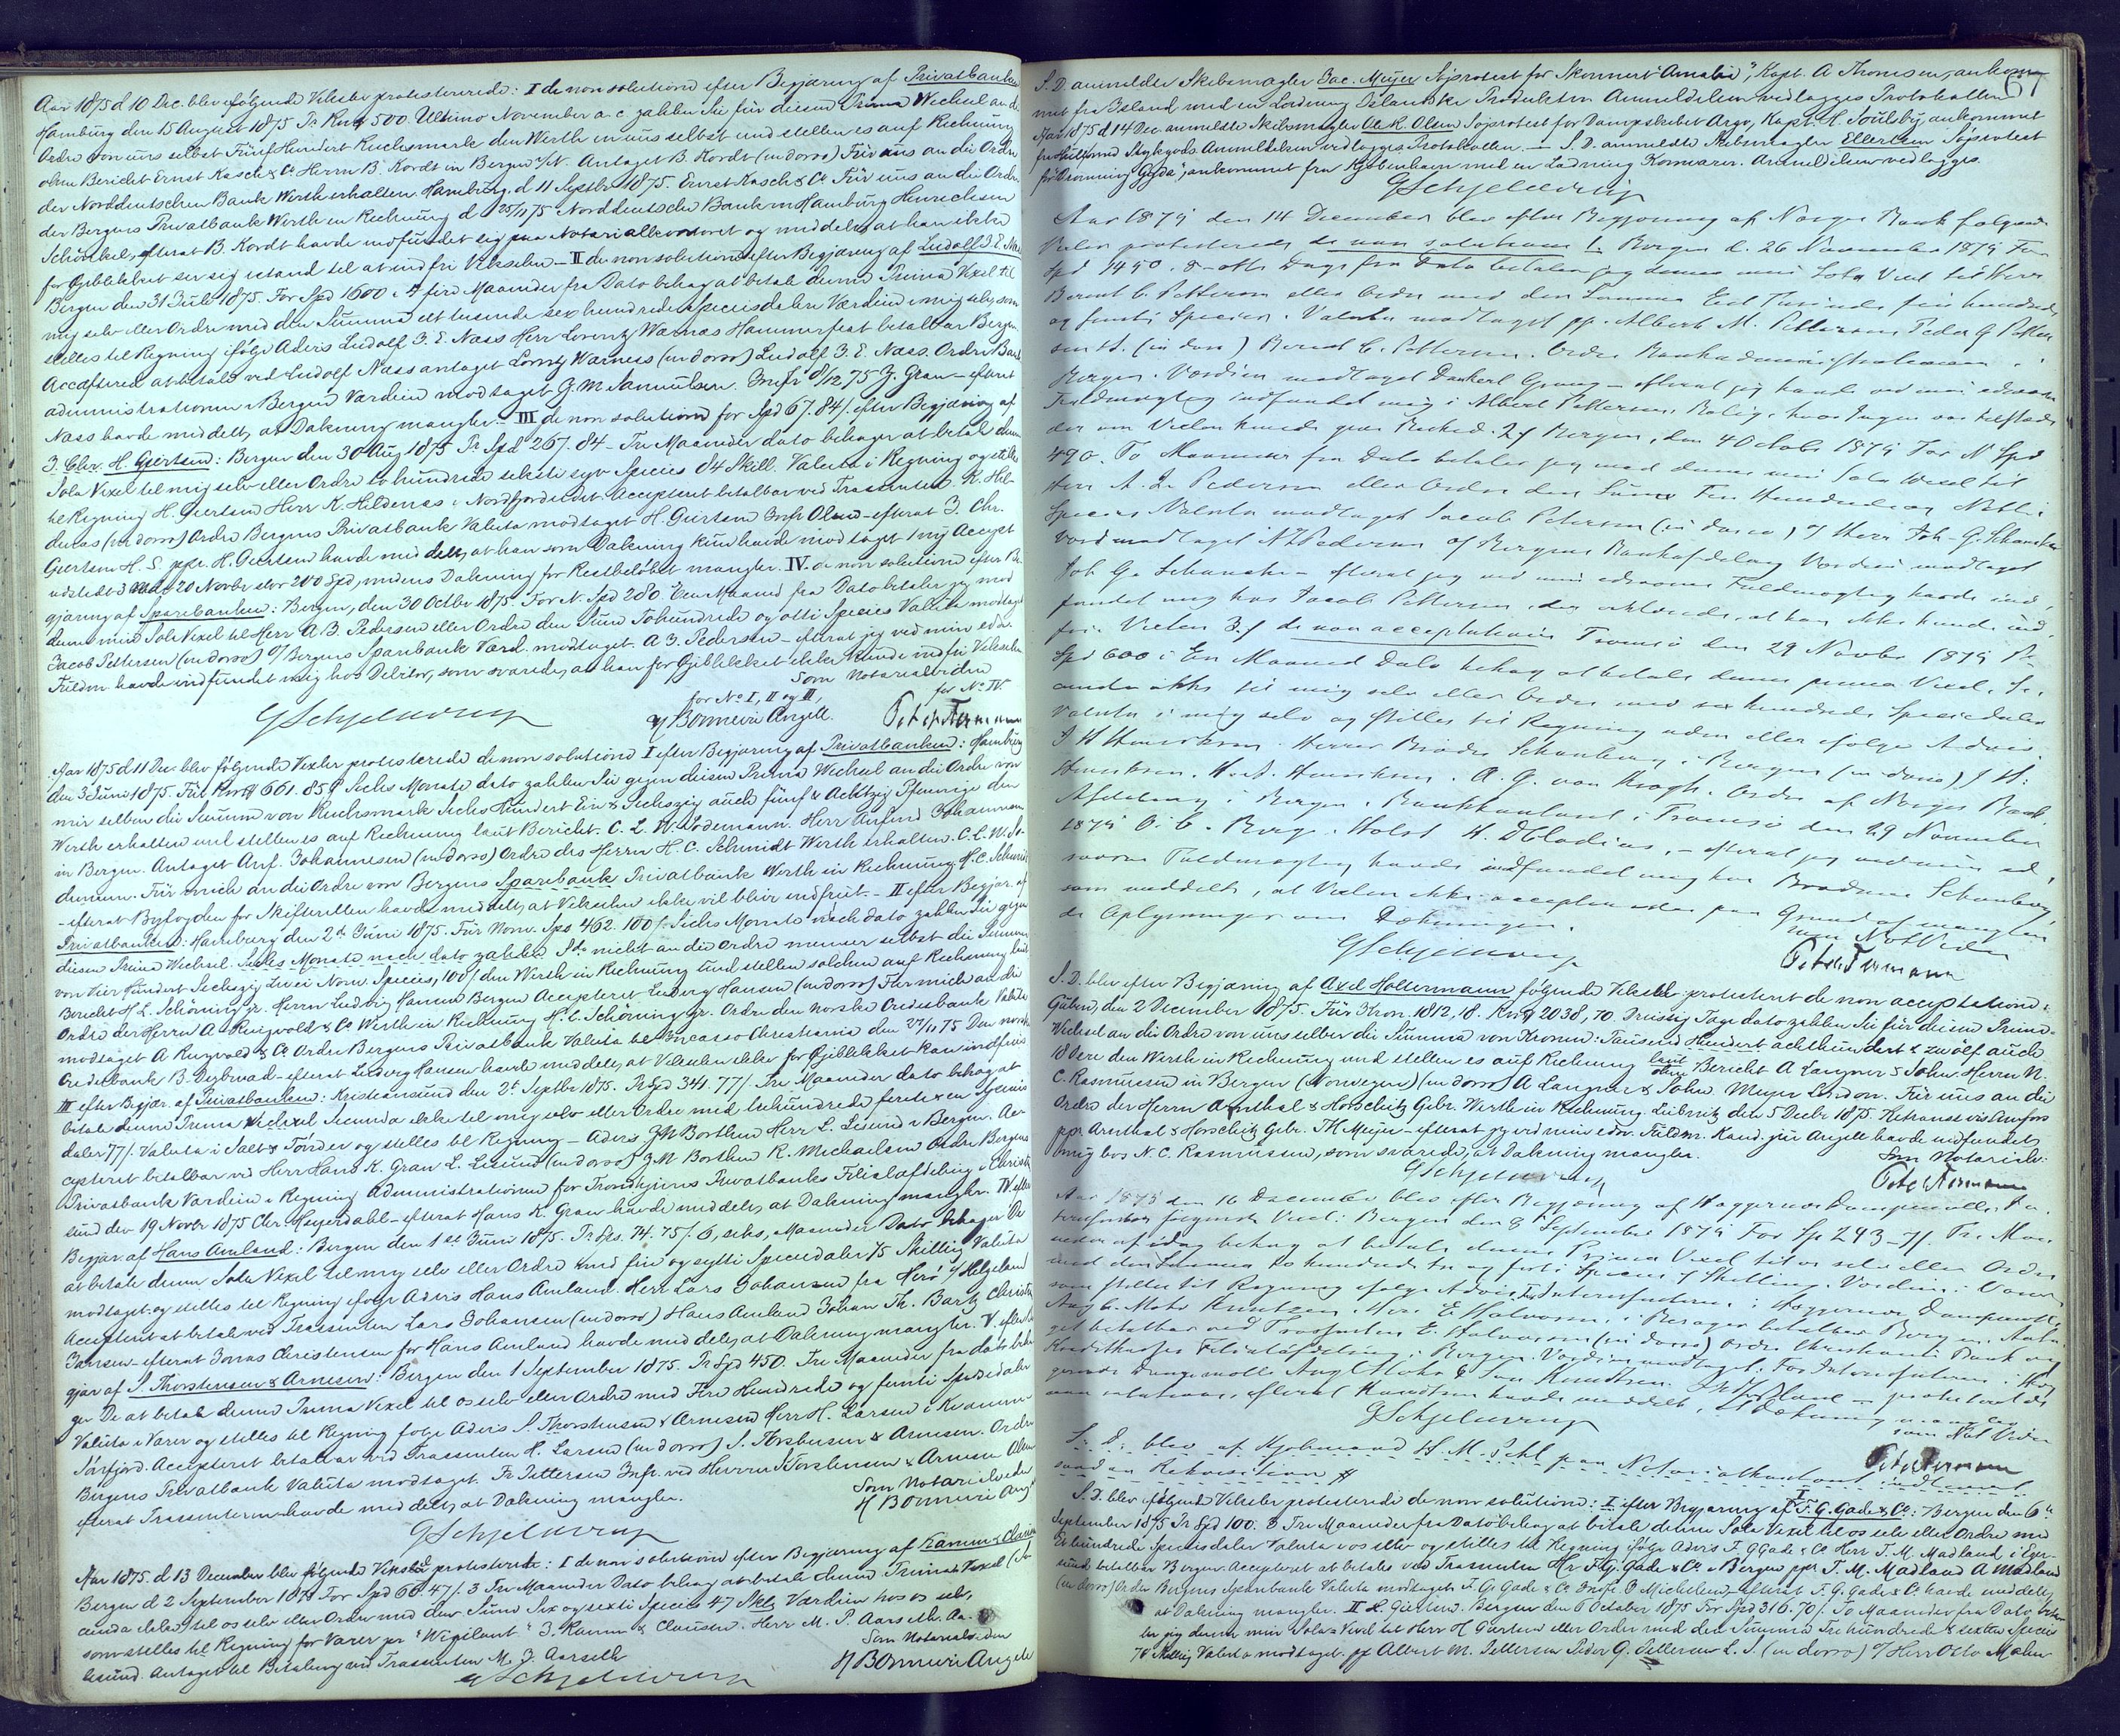 Aar 1875 d 10 Dec. blev følgende Veksler protesterede: I de non solutione efter Begjæring af Privatbanken
Hamburg den 15 August 1875 Pr Rmk 500. Ultimo November a. c zahlen Sie für diesen Prima Wechsel an die
Ordre von uns selbst Fünf Hundert Reichsmark den Werth in uns selbst und stellen es auf Rechnung
ohne Bericht Ernst Kasch & Co Herrn B. Kordt in Bergen Antaget B. Kordt (in dorso) Für uns an die Ordre
der Norddeutschen Bank Werth erhalten. Hamburg d 11 Septbr 1875. Ernst Kasch & Co Für uns an die Ordre
der Bergens Privatbank Werth in Rechnung d 25/11 75 Norddeutsche Bank in Hamburg Hinrichsen
Schönkel, efterat B. Kordt havde indfundet sig paa Notarialkontoret og meddelt at han ikke
for Øieblikket ser sig istand til at indfri Vekselen – II de non solutione efter Begjæring af Ludolf J. E. Nass
Bergen den 31 Juli 1875. For Spd 1600 – fire Maaneder fra Dato behag at betale denne Prima Vexel til
mig selv eller Ordre med den Summa ett tusende sex hundrede Speciesdaler Værdien i mig selv, som
stilles til Regning ifølge Advis Ludolf J. E. Nass Herr Lorentz Warnæs Hammerfest betalbar Bergen
Accepteres at betale ved Ludolf Nass antaget Lorentz Warness (in dorso) Ludolf J. E. Nass. Ordre Bank
administrationen i Bergen Værdien modtaget J. M Samuelsen. Indfr 8/12 75 J. Gran – efterat
Nass havde meddelt, at Dækning mangler – III de non solutione for Spd 67. 84/ efter Begjæring af
J. Chr. H. Gjertsen: Bergen den 30 Aug 1875 Pr Spd 267. 84 – Tre Maaneder dato behager at betale denne
Sola Vexel til mig selv eller Ordre to hundrede seksti syv Species 84 Skill. Valuta i Regning og stilles
til Regning H. Gjertsen Herr K. Hildenæs i Nordfjordeidet. Accepteret betalbar ved Trassenten. K. Hil-
denæs (in dorso) Ordre Bergens Privatbank Valuta modtaget H. Gjertsen Indfr Olsen – efterat J. Chr.
Gjertsen H. S. ppa. H. Gjertsen havde meddelt, at han som Dækning kun havde modtaget 1 ny Accept
udstedt 3 Mdr 20 Novbr stor 200 Spd, medens Dækning for Restbeløbet mangler. IV. de non solutione efter Be-
gjæring af Sparebanken: Bergen, den 30 Octbr 1875. For N. Spd 280. Een Maaned fra Dato betaler jeg mod
denne min Sola Vexel til Herr A. B. Pedersen eller Ordre den Sum Tohundrede og otti Species Valuta modtaget
Jacob Pettersen (in dorso) Bergens Sparebank Værd. modtaget. A. J. Pedersen – efterat jeg ved min edsv.
Fuldm. havde indfundet mig hos Debitor, som svarede, at han for Øieblikket ikke kunde indfri Vekselen.
Som Notarialvidne
for No I, II og III, for No IV.
GSchjelderup Bonnevie Angell. Peter Formann
Aar 1875 d 11 Dec. blev følgende Vexler protesterede de non solutione I efter Begjæring af Privatbanken: Hamburg
den 3 Juni 1875. Für Rmk 661. 85 Sechs Monate dato zahlen Sie gegen diesen Prima Wechsel an die Ordre von
mir selben die Summa von Reichsmark Sechs Hundert Ein & Sechszig auch fünf & Achtzig Pfennige den
Werth erhalten und stellen es auf Rechnung laut Bericht. C. L. W. Lodemann. Herr Anfind Johannesen
in Bergen. Antaget Anf. Johannesen (in dorso) Ordre des Herrn H. C. Schmidt Werth erhalten. C. L. W. Lo-
demann. Für mich an die Ordre von Bergens Sparebank Privatbank Werth in Rechnung. H. C. Schmidt
– efterat Byfogden for Skifteretten havde meddelt, at Vekselen ikke vil blive indfriet. – II efter Begjær. af
Privatbanken: Hamburg den 2 Juni 1875. Für Norw. Spd 462. 100/. Sechs Monate nach dato zahlen Sie gegen
diesen Prima Wechsel. Sechs Monate nach dato zahlen Sie nicht an die Ordre meiner selbst die Summa
von Vier Hundert Sechszig zwei Norw. Species, 100/ den Werth in Rechnung und stellen solchen auf Rechnung laut
Bericht H. L. Schöning jr. Herrn Ludvig Hansen Bergen Accepteret Ludvig Hansen (in dorso) Für mich an die
Ordre der Herrn A Ruzvold & Co Werth in Rechnung H. C. Schöning jr. Ordre den norske Creditbank Valuta
modtaget A Ruzvold & Co Ordre Bergens Privatbank Valuta til Incasso Christiania den 27/11 75 Den norske
Creditbank B. Dybwad – efterat Ludvig Hansen havde meddelt, at Vekselen ikke for Øieblikket kan indfries
III efter Begjær. af Privatbanken: Kristiansund den 2 Septbr 1875. Pr Spd 341. 77/. Tre Maaneder dato behag at
betale denne Prima Vechsel secunda ikke til mig selv eller Ordre med trehundrede førti & en Species
daler 77/. Valuta i Salt & Tønder og stilles til Regning – Advis J. N Borthen Herr L. Lisund i Bergen. Ac-
cepteret betalbar ved Herr Hans K. Gran L. Lisund (in dorso) J. N Borthen R. Michaelsen Ordre Bergens
Privatbank Værdien i Regning Administrationen for Trondhjems Privatbankes Filialafdeling i Christian-
sund den 19 Novbr 1875 Chr. Heyerdahl – efterat Hans K. Gran havde meddelt, at Dækning mangler. IV. efter
Begjær. af Hans Amland: Bergen den 1ste Juni 1875. Pr Sps. 74. 75/. 6, seks, Maaneder Dato behager De
at betale denne Sola Vexel til mig selv eller Ordre med fire og sytti Speciedaler 75 Skilling Valuta
modtaget, og stilles til Regning ifølge Advis Hans Amland. Herr Lars Johansen fra Herø Helgeland
Accepteret at betale ved Trassenten Lars Johansen (in dorso) Hans Amland Johan Th. Bartz Christen
Jansen – efterat Jonas Christensen for Hans Amland havde meddelt, at Dækning mangler. V. efter Be-
gjær af S. Thorstensen & Arnesen: Bergen den 1 September 1875. Pr Spd 450. Tre Maaneder fra dato beha-
ger De at betale denne Prima Vexel til os selv eller Ordre med Fire Hundrede og femti Speciedaler
Valuta i Varer og stilles til Regning følge Advis S. Thorstensen & Arnesen Herr H. Larsen i Kvammen
Sørfjord. Accepteret betalbar ved Trassenten H. Larsen (in dorso) S. Thorstensen & Arnesen. Ordre
Bergens Privatbank Valuta modtaget. Fr. Pettersen Indfr. ved Herrer Thorstensen & Arnesen Olsen
efterat Trassenterne havde meddelt, at Dækning mangler. Som Notarialvidne
GSchjelderup Bonnevie Angell
Aar 1875. d 13 December blev følgende Veksel protesteret: I de non solutione efter Begjæring af Ramm & Clausen
Bergen d 2 September 1875 For Spd 66. 47/. 3 Tre Maaneder Dato behag at betale denne Prima Vexel (Se-
cunda ikke) til os selv eller Ordre med den Sum Sex og sexti Species 47 Sk. Værdien hos os selv,
som stilles til Regning for Varer pr "Wigilant" J. Ramm & Clausen. Herr M. P. Aarseth. Aa-
lesund. Antaget til Betaling ved Trassenten M. J. Aarseth Som Notarialvidne
GSchjelderup Bonnevie Angell
67
S. D. anmeldte Skibsmægler Jac. Meyer Søprotest for Skonnert "Amalie", Kapt. A Thomsen, ankom-
met fra Island med en Ladning Islandske Produkter. Anmeldelsen vedlægges Protokollen.
Aar 1875 d 14 Dec. anmeldte Skibsmægler Ole R. Olsen Søprotest for Dampskibet Argo, Kapt. H. Soulsby, ankommet
fra Hull med Stykgods. Anmeldelsen vedlægges Protokollen. – S. D. anmeldte Skibsmægler Ellertsen Søprotest
for "Dronning Gyda", ankommet fra Kjøbenhavn med en Ladning Kornvarer. Anmeldelsen vedlægges.
GSchjelderup
Aar 1875 den 14 December blev efter Begjæring af Norges Bank følgende
Veksler protesterede de non solutione 1. Bergen d: 26 November 1875 For
Spd 1450. 8 – otte Dage fra Dato betaler jeg denne min Sola Vexel til Herr
Berent C. Pettersen eller Ordre med den Summa Eet Tusinde fire hundrede
og femti Species. Valuta modtaget pp. Albert M. Pettersen Peder G Petter-
sen. (in dorso) Berent C. Pettersen. Ordre Bankadministrationen i
Bergen. Værdien modtaget Dankert Grung – efterat jeg havde ved min edsvorne
Fuldmægtig indfundet mig i Albert Pettersens Bolig, hvor Ingen var tilstede
der om Vexlen kunde give Besked. 2/ Bergen, den 4 Octobr 1875 For N Spd
490. To Maaneder fra Dato betaler jeg mod denne min Sola Wexel til
Herr A. L. Pedersen eller Ordre den Summa Fire Hundrede og Nitti
Species Valuta modtaget Jacob Petersen (in dorso) Herr Joh. G. Schanche
Værd modtaget Pedersen Bergens Bankafdeling Værdien modtaget
Joh G. Schanche – efterat jeg ved min edsvorne Fuldmægtig havde ind-
fundet mig hos Jacob Pettersen, der erklærede, at han ikke kunde ind-
frie Vexlen 3/ de non acceptatione Tromsø den 29 Novbr 1875 Pr
Spd 600 – Een Maaned Dato behag at betale denne prima Vexel, Se-
cunda ikke til mig selv eller Ordre med sex hundrede Speciedaler
Valuta i mig selv og stilles til Regning uden eller ifølge Advis
J H Henriksen. Herrer Brødre Schanberg, Bergen (in dorso) J H:
Henriksen. A. G. von Krogh. Ordre af Norges Bank
Afdeling i Bergen. Bankkontoret i Tromsø den 29 November
1875 O. C. Borge. Holst H. D Cladius, – efterat jeg ved min ed-
svorne Fuldmægtig havde indfundet mig hos Brødrene Schanberg,
som meddelte, at Vexlen ikke accepteredes paa Grund af manglen-
de Oplysninger om Dækningen. som NotVidne
GSchjelderup Peter Formann
S. D. blev efter Begjæring af Axel Holtermann følgende Veksel protesteret de non acceptatione:
Guben, den 2 December 1875. Für Kron. 1812, 18. Rmk 2038, 70. Dreissig Tage dato zahlen Sie für diesen Prima-
Wechsel an die Ordre von uns selber die Summa von Kronen: Tausend Hundert achthundert & zwölf auch
18 Oere den Werth in Rechnung und stellen es auf Rechnung laut ohne Bericht A Langner & Sohn. Herrn N.
C. Rasmussen in Bergen (Norwegen) (in dorso) A Langner & Sohn. Meyer London. Für uns an die
Ordre der Herrn Arnthal & Horschitz Gebr. Werth in Rechnung. Leibnitz den 5 Decbr 1875.
pp. Arnthal & Horschitz Gebr. Meyer – efterat jeg ved min edsv. Fuldm. Kand. jur Angell havde indfundet
mig hos N. C. Rasmussen, som svarede, at Dækning mangler. Som Notarialv.
GSchjelderup Peter Formann
Aar 1875 den 16 December blev efter Begjæring af Waggernæs Dampmølles In-
teressentskab følgende Vexel: Bergen den 8 September 1875 For Sp 243 – 7/. Tre Maa-
neder af idag behag at betale denne Prima Vexel til os selv eller Ordre
med den Summa to hundrede tre og førti Species 7 Skilling. Værdien i Varer
som stilles til Regning ifølge Advis For Interessenterne i Waggernæs Dampmølle
Aug C. Mohr Knudtzen. Herr E. Halvorsen, i Beragen betalbar Bergen. Anta-
get betalbar ved Trassenten E. Halvorsen (in dorso) Ordre Christiania Bank og
Kreditkasses Filialafdeling i Bergen. Værdien modtaget. For Interessenterne i Wag-
gernæs Dampmølle Aug C Mohr & Søn Knudtzen. – protesteret de
non solutione, efterat Knudtzen havde meddelt, at Dækning mangler
som Not Vidne
GSchjelderup Peter Formann
S. D. blev af Kjøbmand H. M. Pihl paa Notarialkontoret indleveret
saadan Rekvisition
S. D. blev følgende Veksler protesterede de non solutione: I efter Begjæring af F. G. Gade & Co: Bergen den 6te
September 1875 Pr Spd 100. 3 Tre Maaneder fra Dato behag at betale denne Sola Vexel til os selv eller Ordre med
Ethundrede Speciesdaler Valuta i os selv og stilles til Regning ifølge Advis F. G Gade & Co Herr T. M. Madland i Eger-
sund betalbar Bergen Accepteret at betales ved Trassenten Hr. F. G. Gade & Co. i Bergen ppr. T. M. Madland A Madland
(in dorso) Ordre Bergens Sparebank Valuta modtaget F. G. Gade & Co Indfr. O Michelsen efterat F. G. Gade & Co havde meddelt,
at Dækning mangler. II H. Giertsen. Bergen den 6 October 1875 For Spd 316. 70/. To Maaneder fra Dato beta-
ler jeg denne min Sola-Vexel til Herr H Giertsen eller Ordre med den Summa Trehundrede & sexten Species
70 Skilling Valuta modtaget. pp Albert M. Pettersen Peder G. Pettersen L. S. (in dorso) Herr Otto Malm